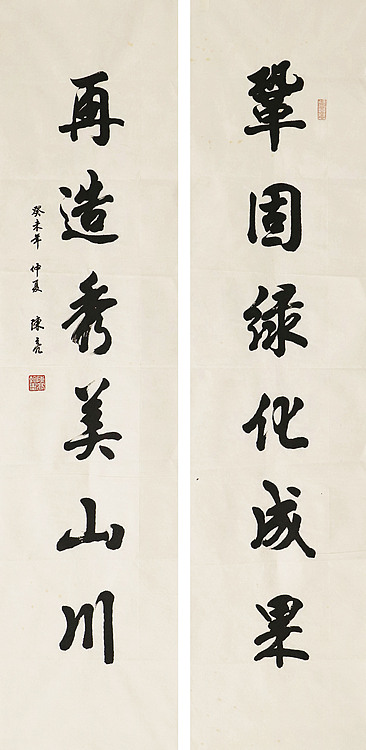 鞏固绿化成果
再造秀美山川
癸未年 仲夏 陳亮